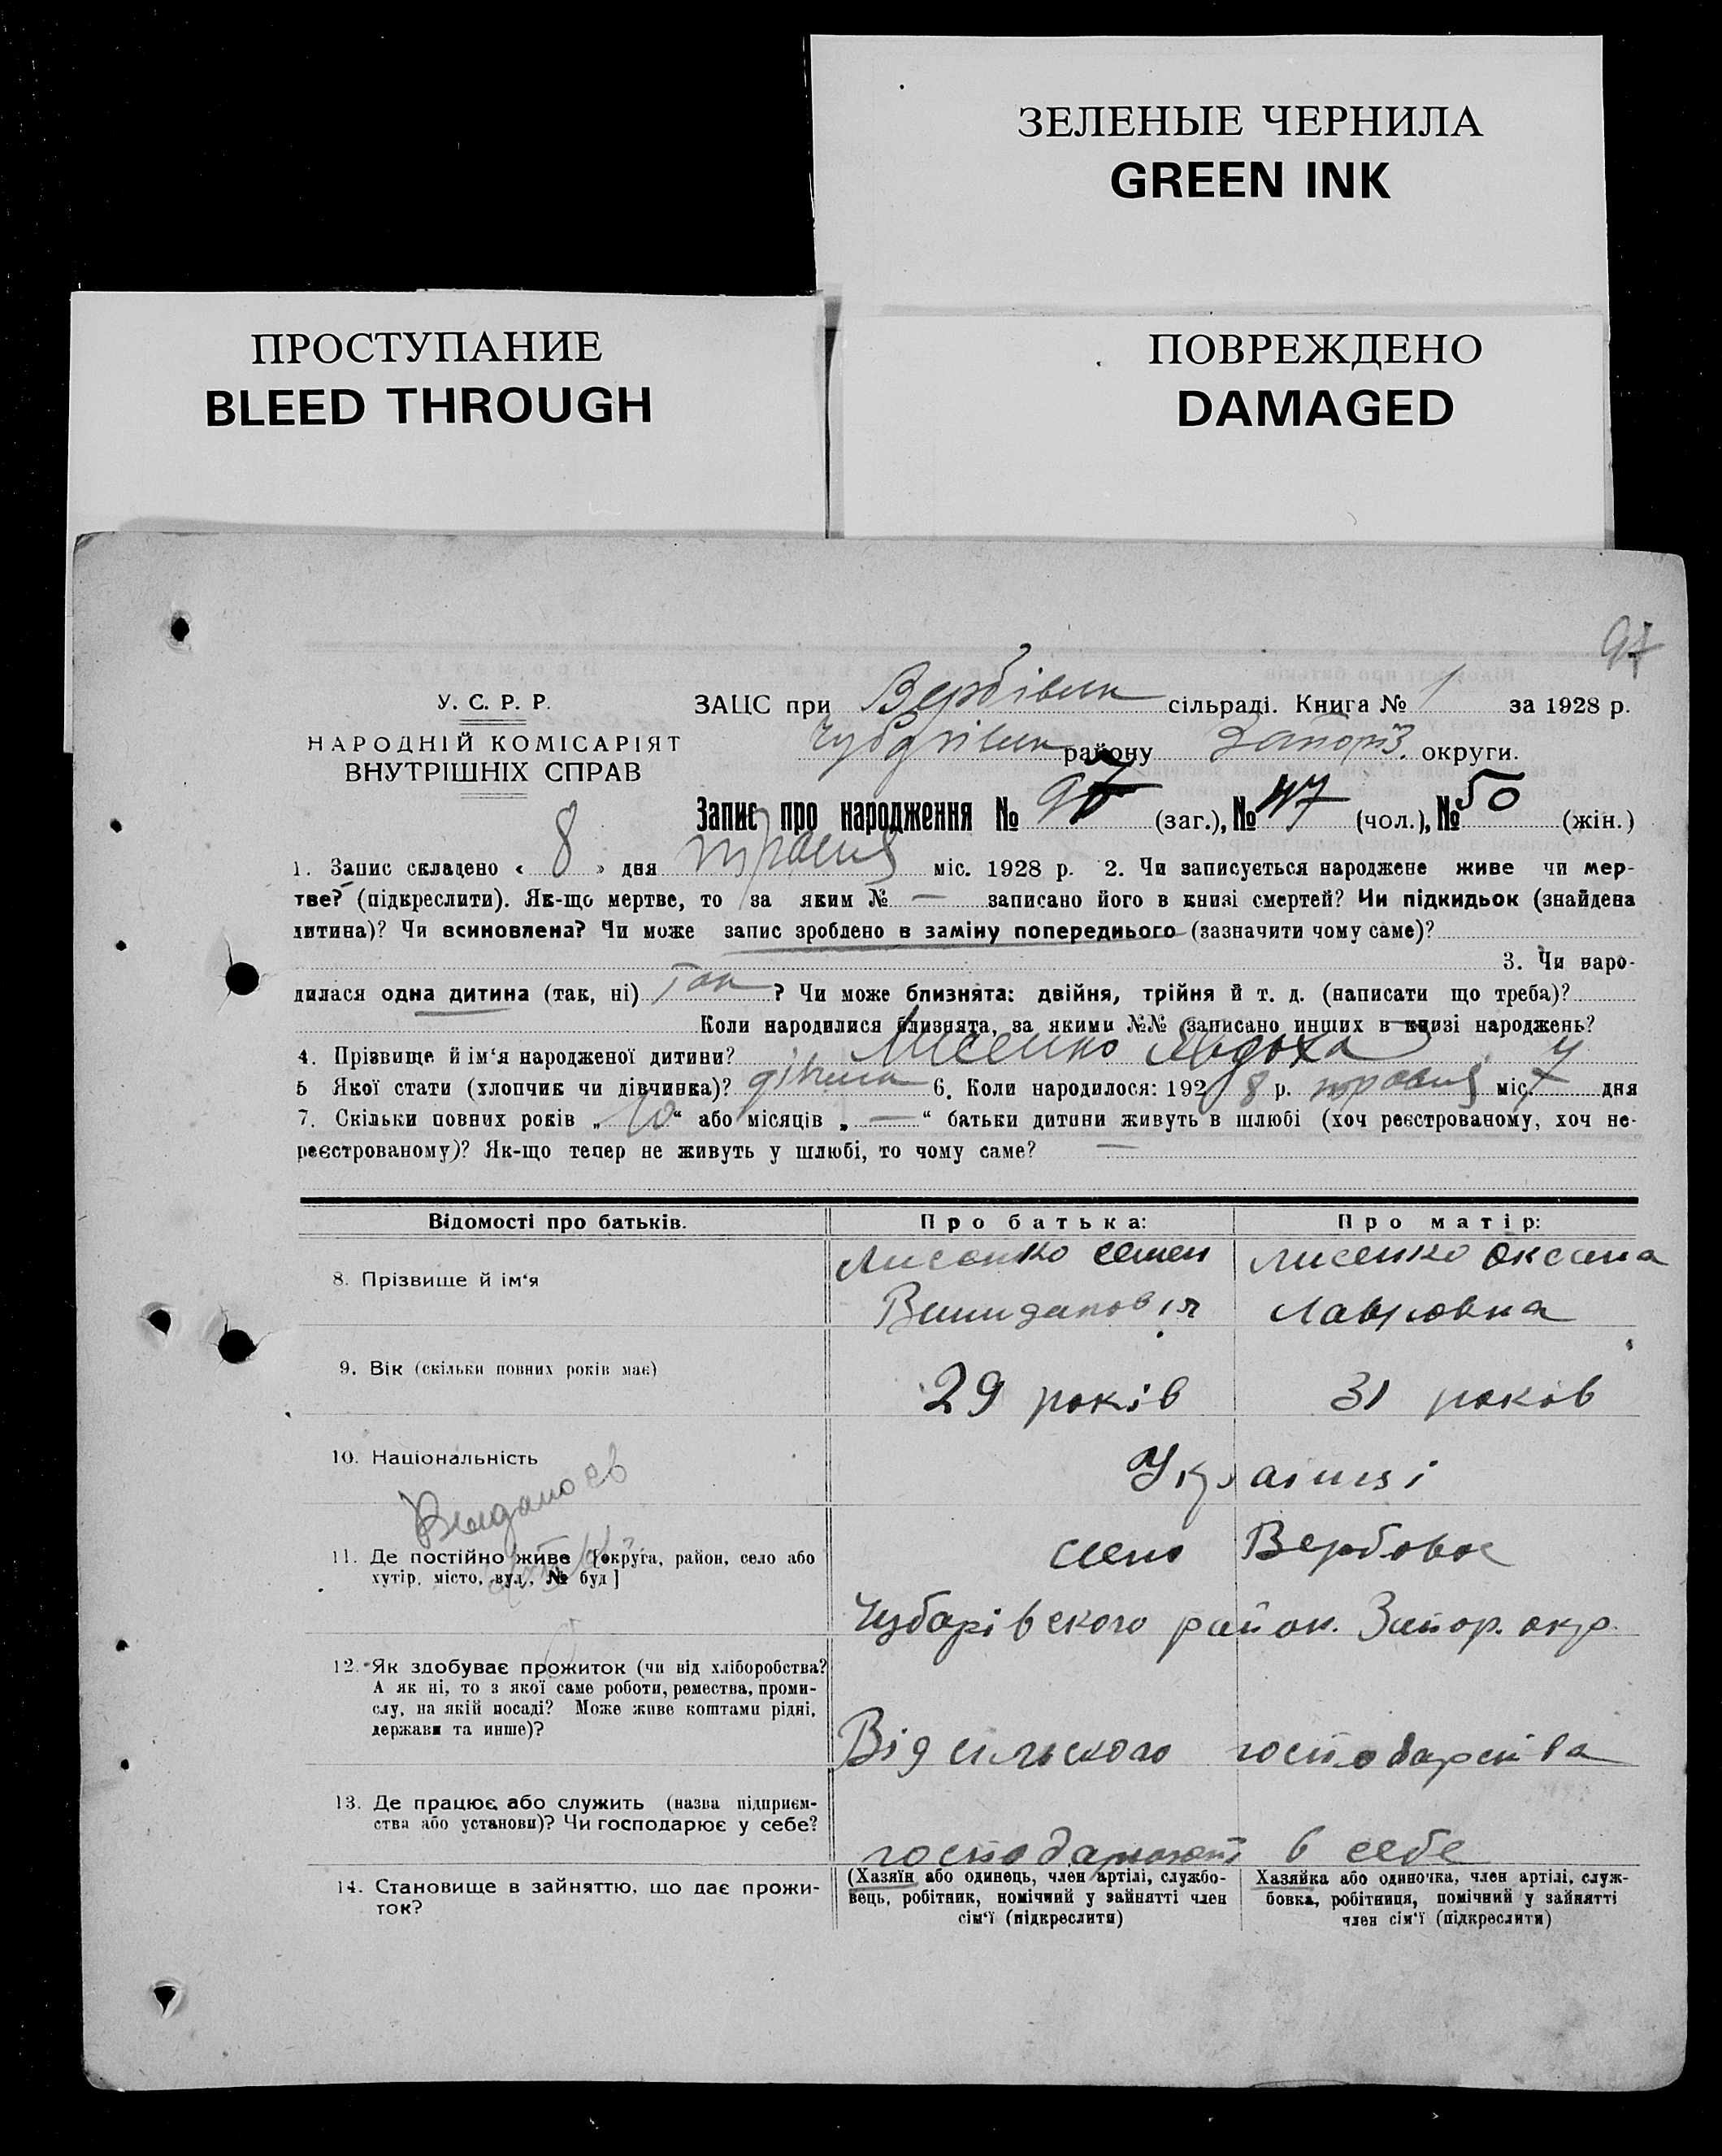 ЗЕЛЕНЫЕ ЧЕРНИЛА
GREEN INK
ПРОСТУПАНИЕ
BLEED THROUGH
ПОВРЕЖДЕНО
DAMAGED
97
У. С. Р. Р.
НАРОДНІЙ КОМІСАРІЯТ
ВНУТРІШНІХ СПРАВ
ЗАЦС при Вербівськ сільраді. Книга № 1 за 1928 р.
району Запоріз. округи.
Запис про народження № 97 (заг.), № 47 (чол.), № 50 (жін.)
1. Запис складено « 8 » дня травня міс. 1928 р. 2. Чи записується народжене живе чи мер-
тве? (підкреслити). Як-що мертве, то за яким № — записано його в книзі смертей? Чи підкидьок (знайдена
дитина)? Чи всиновлена? Чи може запис зроблено в заміну попереднього (зазначити чому саме)?
3. Чи наро-
дилася одна дитина (так, ні) Так ? Чи може близнята: двійня, трійня й т. д. (написати що треба)?
Коли народилися близнята, за якими №№ записано инших в книзі народжень?
4. Прізвище й ім‘я народженої дитини? Лисенко Явдоха
5 Якої стати (хлопчик чи дівчинка)? дівчина 6. Коли народилося: 192 8 р. травня міс. 7 дня
7. Скільки повних років „ 10 “ або місяців „ — “ батьки дитини живуть в шлюбі (хоч реєстрованому, хоч не-
реєстрованому)? Як-що тепер не живуть у шлюбі, то чому саме? —
Відомості про батьків.
Про батька:
Про матір:
8. Прізвище й ім‘я
Лисенко Семен
Лисенко Оксана
Лавровна
9. Вік (скільки повних років має)
29 років
31 років
10. Національність
Українці
11. Де постійно живе [округа, район, село або
хутір, місто, вул., № буд]
село Вербове
Чубарівского район. Запор. окр.
12. Як здобуває прожиток (чи від хліборобства?
А як ні, то з якої саме роботи, ремества, проми-
слу, на якій посаді? Може живе коштами рідні,
держави та инше)?
Від сильского господарства
13. Де працює або служить (назва підприєм-
ства або установи)? Чи господарює у себе?
господарюють в себе
14. Становище в зайняттю, що дає прожи-
ток?
(Хазяїн або одинець, член артілі, службо-
вець, робітник, помічний у зайнятті член
сім‘ї (підкреслити)
Хазяйка або одиночка, член артілі, служ-
бовка, робітниця, помічний у зайнятті
член сім‘ї (підкреслити)